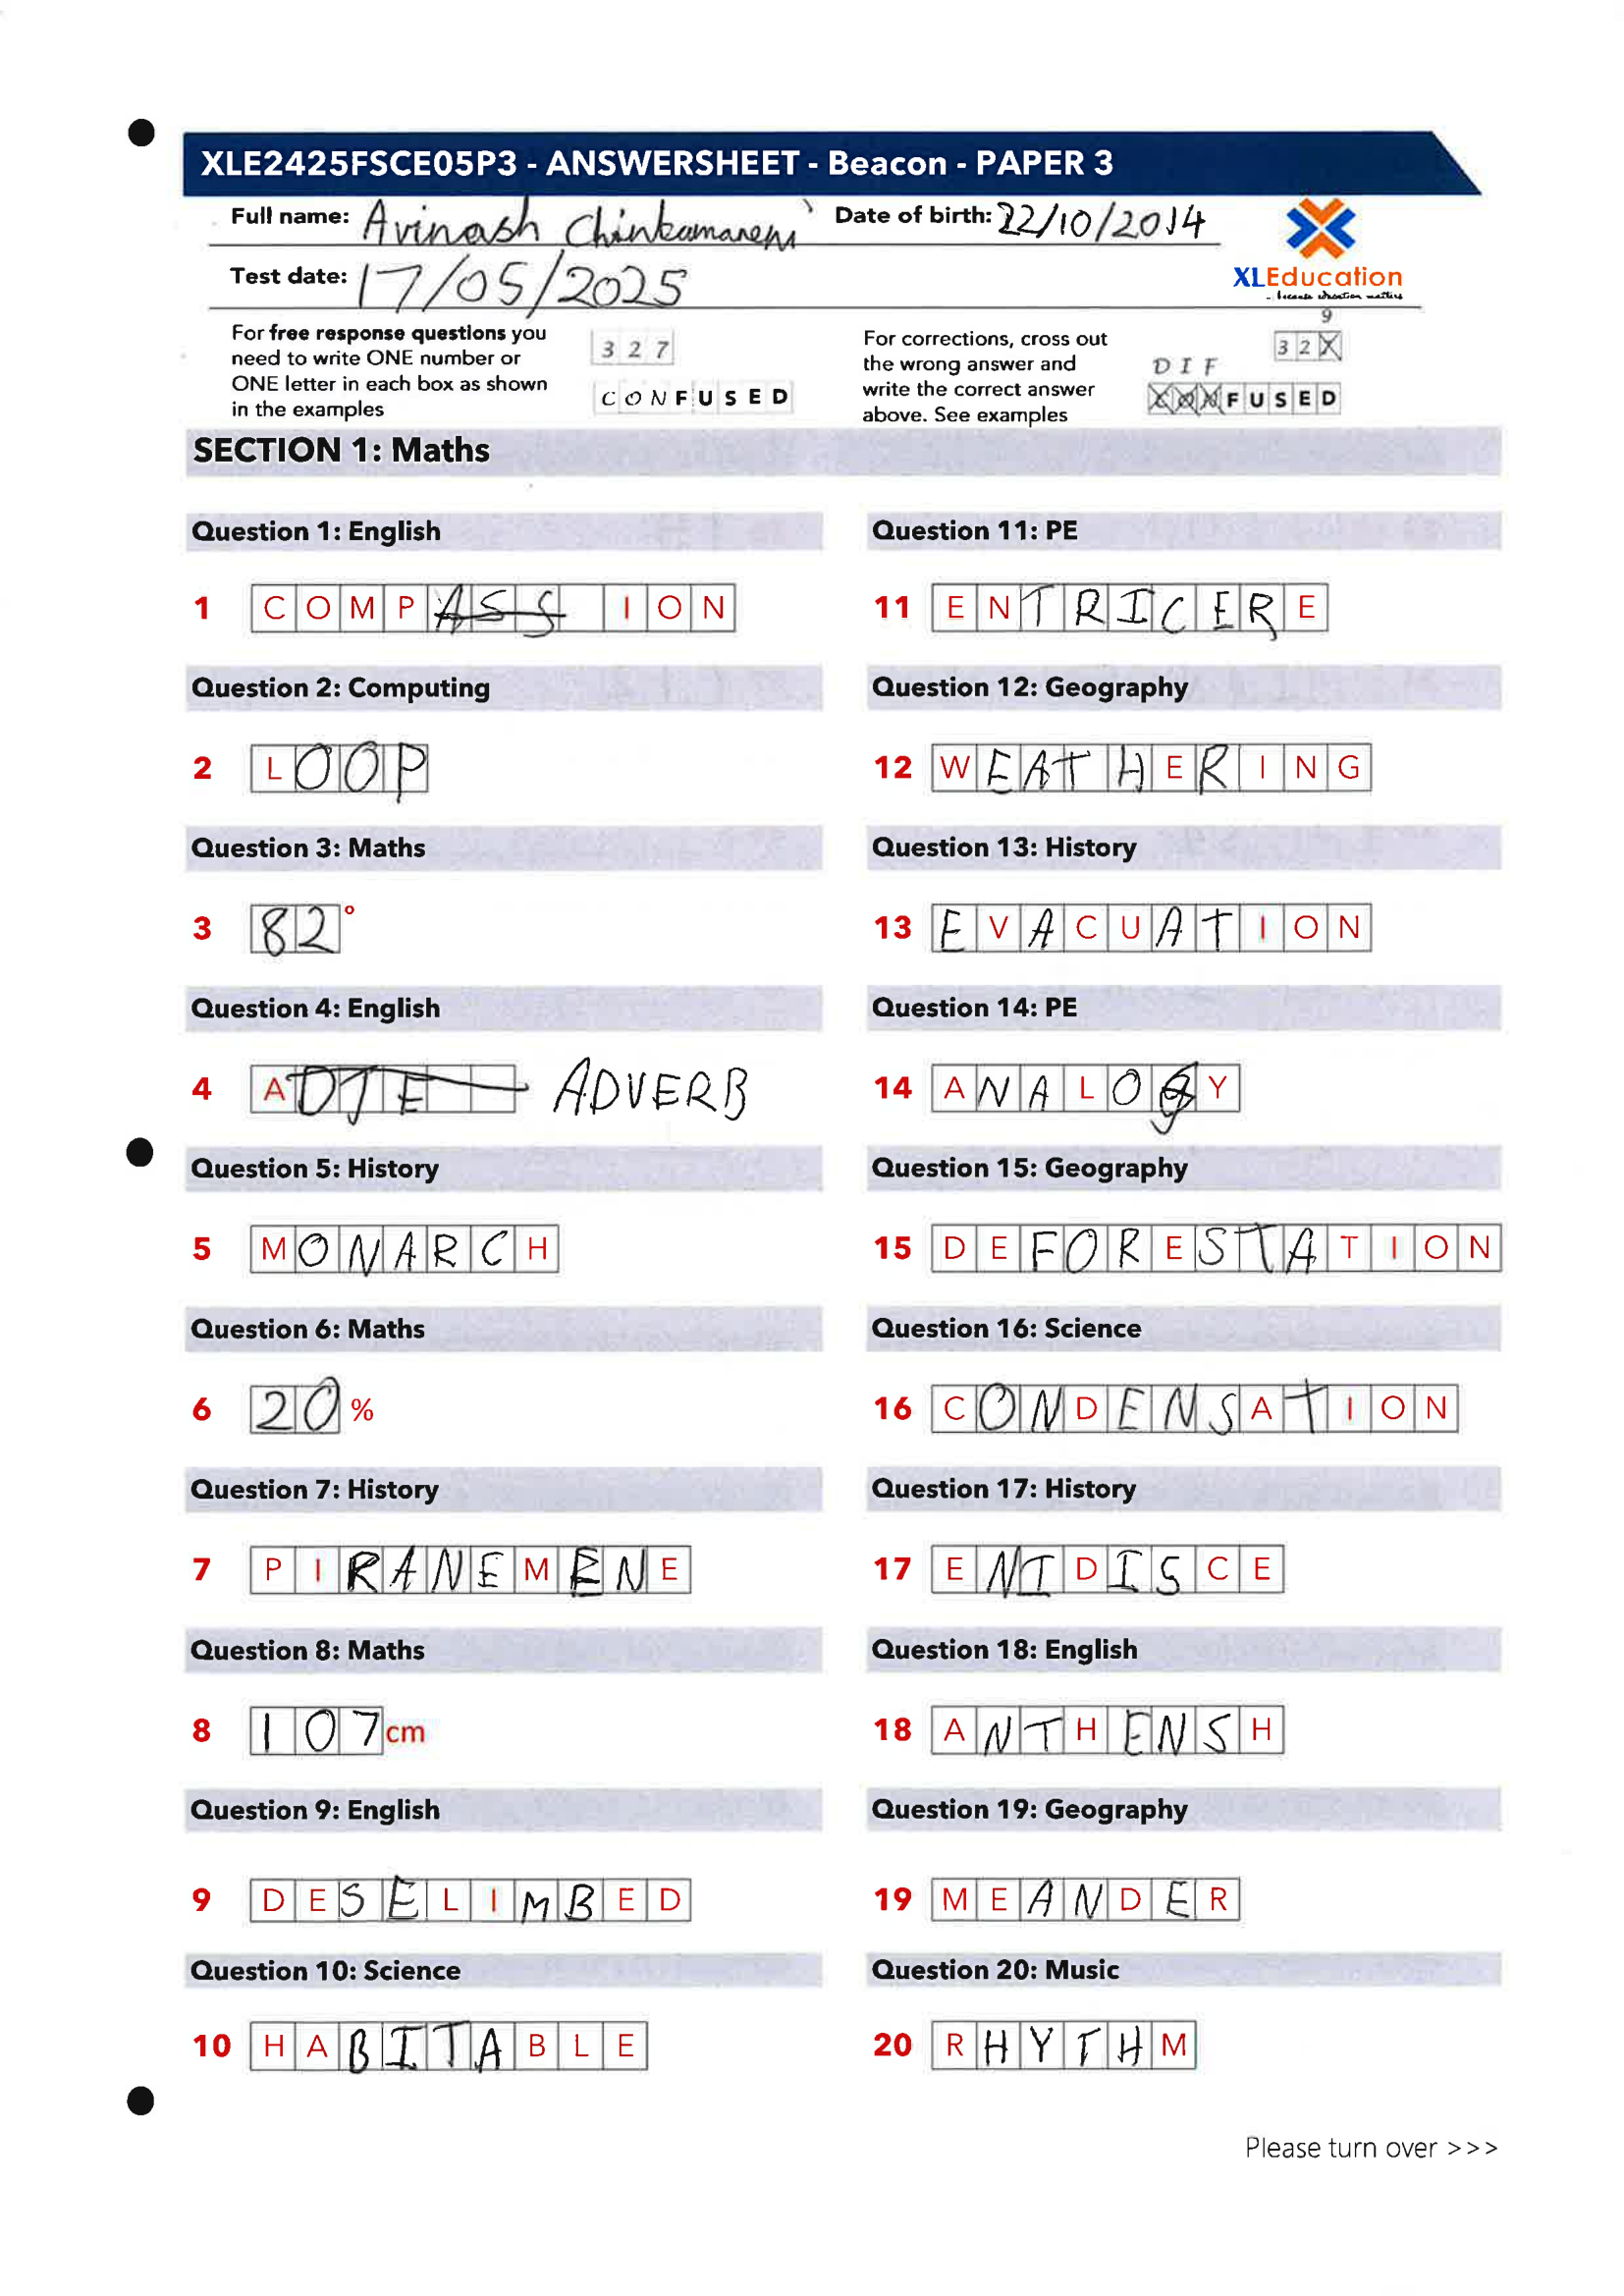 XLE2425FSCE05P3 - ANSWERSHEET - Beacon - PAPER 3
Full name: Avinash Chinkamaneni Date of birth: 22/10/2014
Test date: 17/05/2025
XLEducation
... because education matters
For free response questions you
need to write ONE number or
ONE letter in each box as shown
in the examples
3 2 7
C O N F U S E D
For corrections, cross out
the wrong answer and
write the correct answer
above. See examples
9
3 2 X
D I F
F U S E D
SECTION 1: Maths
Question 1: English
1 C O M P A S S I O N
Question 2: Computing
2 L O O P
Question 3: Maths
3 8 2 °
Question 4: English
4 A D J E ADVERB
Question 5: History
5 M O N A R C H
Question 6: Maths
6 2 0 %
Question 7: History
7 P I R A N E M E N E
Question 8: Maths
8 1 0 7 cm
Question 9: English
9 D E S E L I M B E D
Question 10: Science
10 H A B I T A B L E
Question 11: PE
11 E N T R I C E R E
Question 12: Geography
12 W E A T H E R I N G
Question 13: History
13 E V A C U A T I O N
Question 14: PE
14 A N A L O G Y
Question 15: Geography
15 D E F O R E S T A T I O N
Question 16: Science
16 C O N D E N S A T I O N
Question 17: History
17 E N I D I S C E
Question 18: English
18 A N T H E N S H
Question 19: Geography
19 M E A N D E R
Question 20: Music
20 R H Y T H M
Please turn over >>>